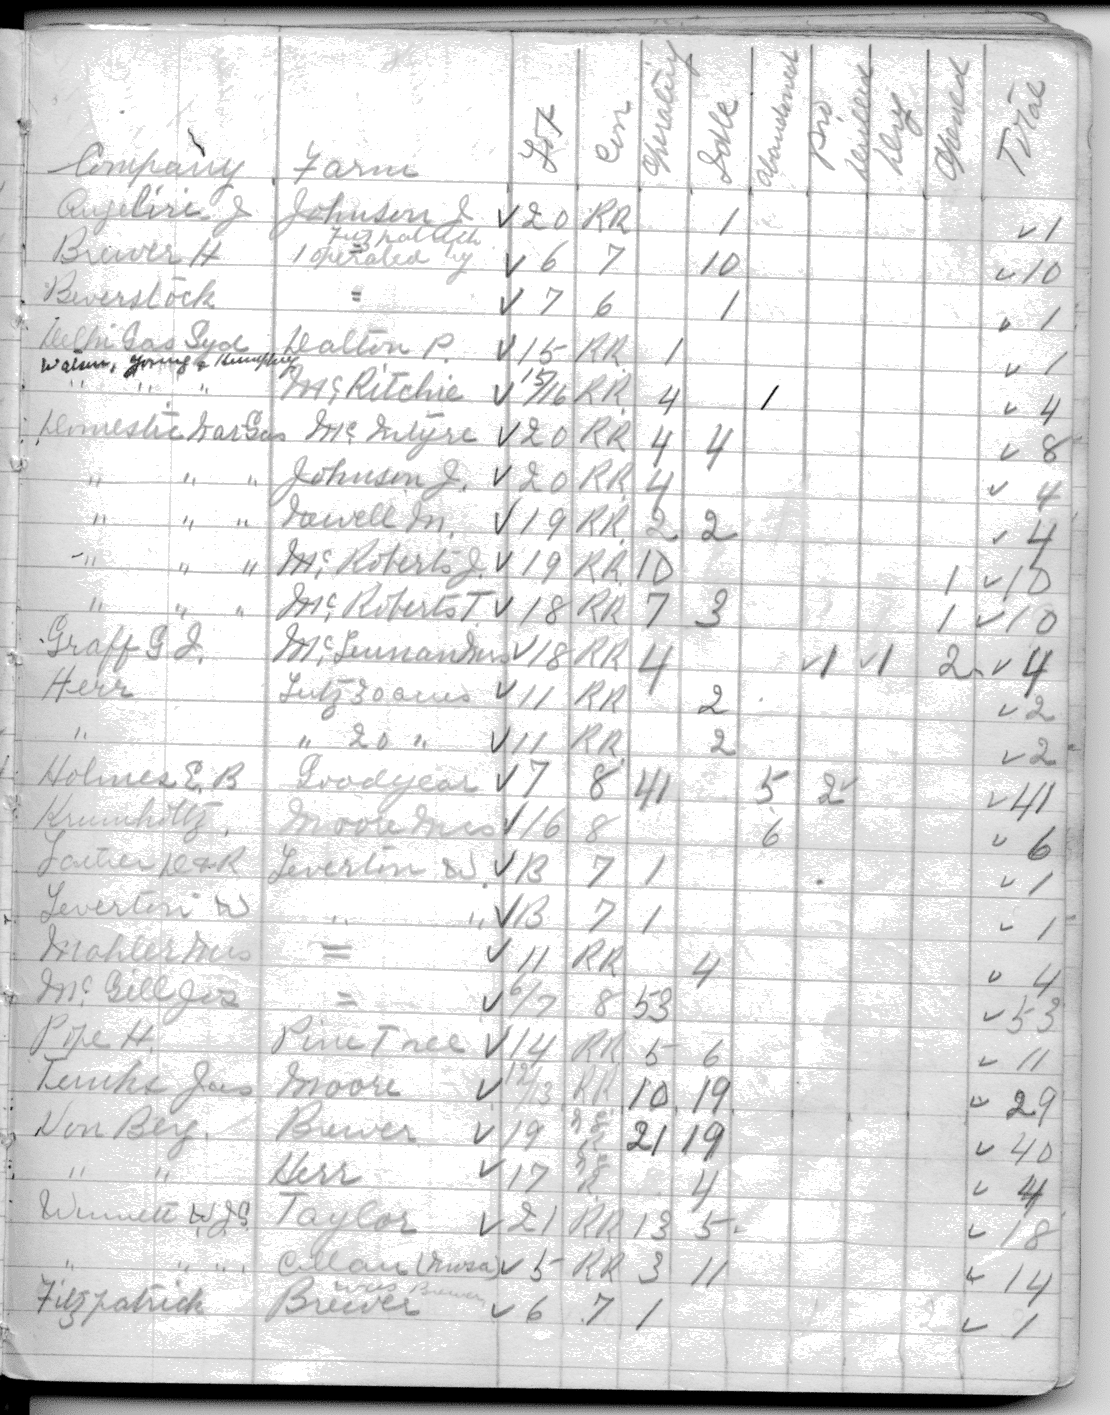 Company Farm Lot Con Operating Idle Abandoned Pro Drilled Deep Opened Total
J Johnson J ✓20 RR 1 ✓1
Fitzpatrick
Brewer H 1 operated by ✓6 7 10 ✓10
Beverstock = ✓7 6 1 ✓1
Delhi Gas Syd Dalton P. ✓15 RR 1 ✓1
Watson, Young & Humphrey
" " " Mc Ritchie ✓15/16 RR 4 1 ✓4
Domestic Nat Gas Mc Intyre ✓20 RR 4 4 ✓8
" " " Johnson J. ✓20 RR 4 ✓4
" " " Sowell M. ✓19 RR 2 2 ✓4
" " " Mc Roberts J. ✓19 RR 10 1 ✓10
" " " Mc Roberts T. ✓18 RR 7 3 1 ✓10
Graff G J. Mc Lennan Mrs ✓18 RR 4 ✓1 ✓1 2 ✓4
Herr Lutz 30 acres ✓11 RR 2 ✓2
" " 20 " ✓11 RR 2 ✓2
Holmes E. B Goodyear ✓7 8 41 5 2✓ ✓41
Krumholtz. Moore Mrs ✓16 8 6 ✓6
D & R Leverton W. ✓13 7 1 ✓1
Leverton W " " ✓13 7 1 ✓1
Mahler Mrs = ✓11 RR 4 ✓4
Mc Gill Jas = ✓6/7 8 53 ✓53
Pope H. Pine Tree ✓14 RR 5 6 ✓11
Jas Moore ✓12/13 RR 10 19 ✓29
Von Berg. Brewer ✓19 21 19 ✓40
" " Herr ✓17 4 ✓4
Winnett W. J.G. Taylor ✓21 RR 13 5 ✓18
" " " " ✓5 RR 3 11 ✓14
was Brewer
Fitzpatrick Brewer ✓6 7 1 2 ✓1